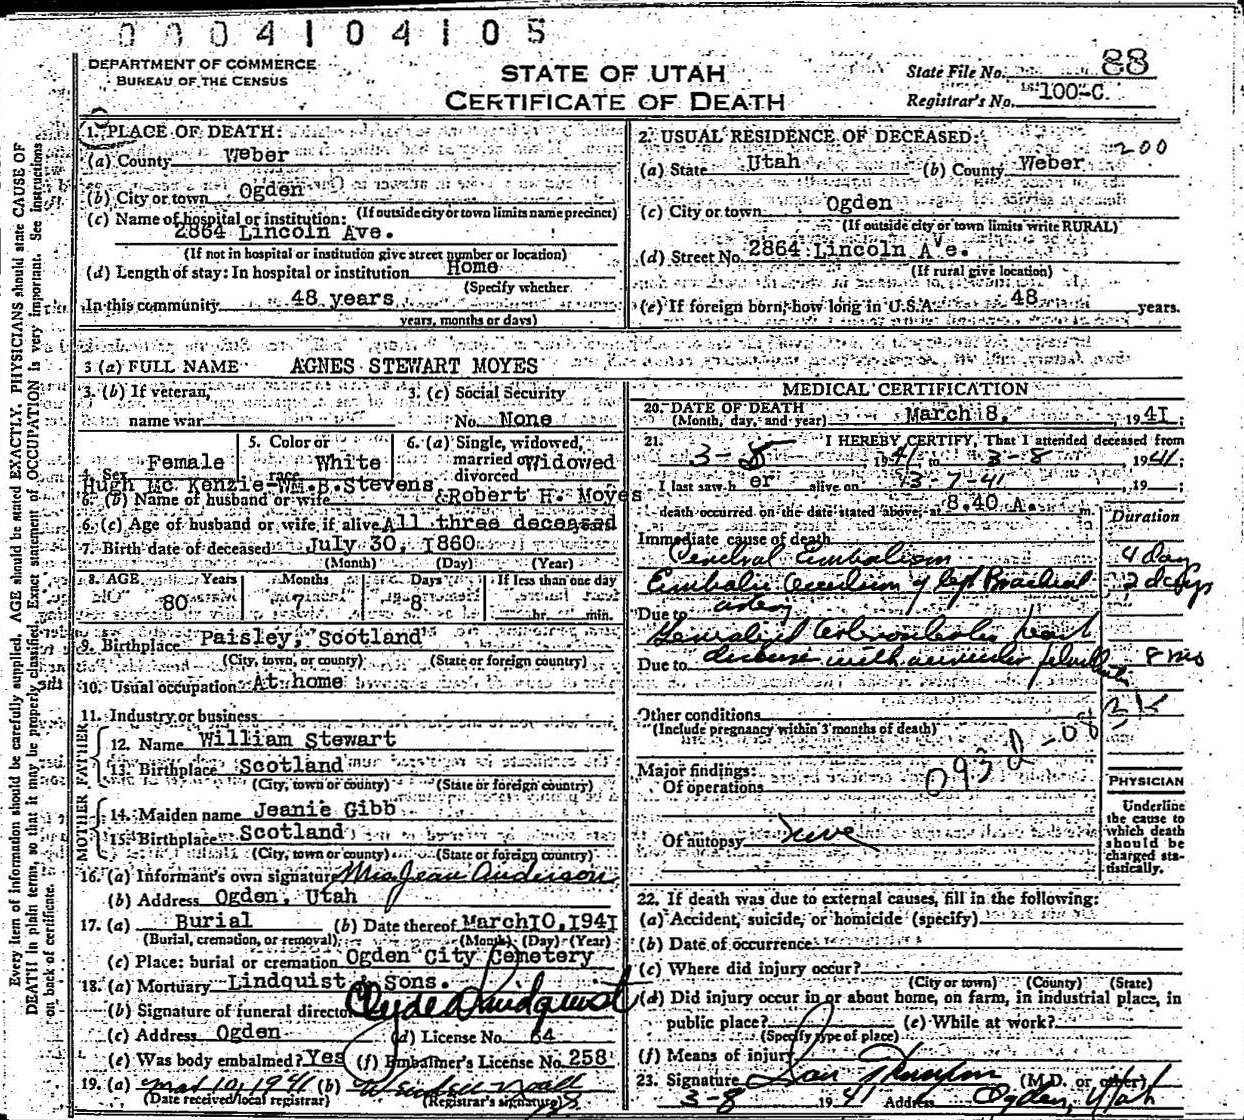 0004104105
DEPARTMENT OF COMMERCE
BUREAU OF THE CENSUS
STATE OF UTAH
CERTIFICATE OF DEATH
State File No. 88
Registrar's No. 100-C
1. PLACE OF DEATH:
(a) County Weber
(b) City or town Ogden
(If outside city or town limits name precinct)
(c) Name of hospital or institution:
2864 Lincoln Ave.
(If not in hospital or institution give street number or location)
(d) Length of stay: In hospital or institution Home
(Specify whether
In this community 48 years
years, months or days)
2. USUAL RESIDENCE OF DECEASED:
200
(a) State Utah (b) County Weber
(c) City or town Ogden
(If outside city or town limits write RURAL)
(d) Street No. 2864 Lincoln Ave.
(If rural give location)
(e) If foreign born, how long in U.S.A. 48 years.
3 (a) FULL NAME AGNES STEWART MOYES
3. (b) If veteran,
name war
3. (c) Social Security
No. None
4. Sex Female
5. Color or
race White
6. (a) Single, widowed,
married or
divorced Widowed
Hugh Mc Kenzie-Wm.B.Stevens
6. (b) Name of husband or wife &Robert H. Moyes
6. (c) Age of husband or wife if alive All three deceased
7. Birth date of deceased July 30, 1860
(Month) (Day) (Year)
8. AGE Years Months Days If less than one day
80 7 8 hr. min.
9. Birthplace Paisley, Scotland
(City, town, or county) (State or foreign country)
10. Usual occupation At home
11. Industry or business
FATHER
12. Name William Stewart
13. Birthplace Scotland
(City, town or county) (State or foreign country)
MOTHER
14. Maiden name Jeanie Gibb
15. Birthplace Scotland
(City, town or county) (State or foreign country)
16. (a) Informant's own signature Mrs Jean Anderson
(b) Address Ogden, Utah
17. (a) Burial (b) Date thereof March 10, 1941
(Burial, cremation, or removal) (Month) (Day) (Year)
(c) Place: burial or cremation Ogden City Cemetery
18. (a) Mortuary Lindquist & Sons.
(b) Signature of funeral director Clyde Lindquist
(c) Address Ogden (d) License No. 64
(e) Was body embalmed? Yes (f) Embalmer's License No. 258
19. (a) Mar 10, 1941 (b)
(Date received local registrar) (Registrar's signature)
MEDICAL CERTIFICATION
20. DATE OF DEATH
(Month, day, and year) March 8, 1941
21. I HEREBY CERTIFY, That I attended deceased from
3-5 1941 to 3-8 1941;
I last saw her alive on 3-7-41, 19
death occurred on the date stated above, at 8.40 A. m.
Duration
Immediate cause of death
Cerebral Embolism 4 days
Embolic Occlusion of left Brachial 2 days
Due to artery
Generalized Arteriosclerotic heart
Due to disease with auricular 8 mo
Other conditions
(Include pregnancy within 3 months of death)
Major findings:
Of operations
093
Of autopsy none
PHYSICIAN
Underline
the cause to
which death
should be
charged sta-
tistically.
22. If death was due to external causes, fill in the following:
(a) Accident, suicide, or homicide (specify)
(b) Date of occurrence
(c) Where did injury occur?
(City or town) (County) (State)
(d) Did injury occur in or about home, on farm, in industrial place, in
public place? (e) While at work?
(Specify type of place)
(f) Means of injury
23. Signature (M.D. or other)
3-8 1941 Address Ogden, Utah
Every item of information should be carefully supplied. AGE should be stated EXACTLY. PHYSICIANS should state CAUSE OF
DEATH in plain terms, so that it may be properly classified. Exact statement of OCCUPATION is very important. See instructions
on back of certificate.